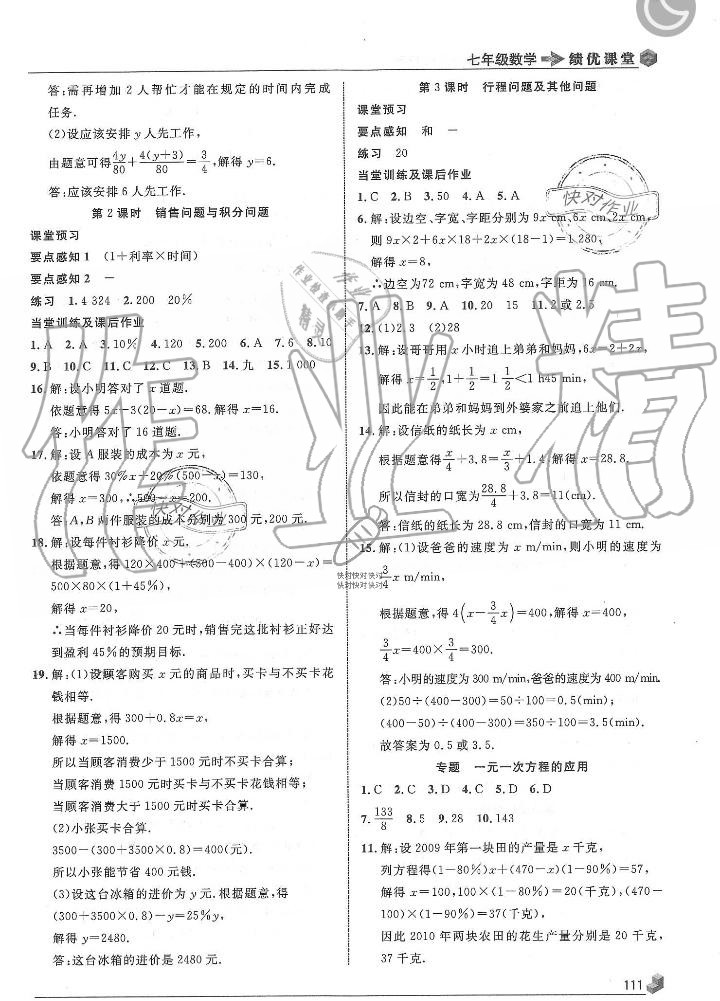 七年级数学 绩优课堂
答:需再增加 2 人帮忙才能在规定的时间内完成
任务.
(2)设应该安排 y 人先工作,
由题意可得4y/80+4(y+3)/80=3/4,解得 y=6.
答:应该安排 6 人先工作.
第 2 课时 销售问题与积分问题
课堂预习
要点感知 1 (1+利率×时间)
要点感知 2 −
练习 1.4 324 2.200 20%
当堂训练及课后作业
1.A 2.A 3.10% 4.120 5.200 6.A 7.6 8.10
9.B 10.C 11.C 12.C 13.B 14.九 15.1 000
16.解:设小明答对了 x 道题.
依题意得 5x−3(20−x)=68.解得 x=16.
答:小明答对了 16 道题.
17.解:设 A 服装的成本为 x 元,
依题意得 30%x+20%(500−x)=130,
解得 x=300,∴500−x=200.
答:A,B 两件服装的成本分别为 300 元,200 元.
18.解:设每件衬衫降价 x 元.
根据题意,得 120×400+(500−400)(120−x)=
500×80×(1+45%),
解得 x=20,
∴当每件衬衫降价 20 元时,销售完这批衬衫正好达
到盈利 45%的预期目标.
19.解:(1)设顾客购买 x 元的商品时,买卡与不买卡花
钱相等.
根据题意,得 300+0.8x=x,
解得 x=1500.
所以当顾客消费少于 1500 元时不买卡合算;
当顾客消费 1500 元时买卡与不买卡花钱相等;
当顾客消费大于 1500 元时买卡合算.
(2)小张买卡合算.
3500−(300+3500×0.8)=400(元).
所以小张能节省 400 元钱.
(3)设这台冰箱的进价为 y 元.根据题意,得
(300+3500×0.8)−y=25%y,
解得 y=2480.
答:这台冰箱的进价是 2480 元.
第 3 课时 行程问题及其他问题
课堂预习
要点感知 和 −
练习 20
当堂训练及课后作业
1.C 2.B 3.50 4.A 5.A
6.解:设边空、字宽、字距分别为 9x cm,6x cm,2x cm,
则 9x×2+6x×18+2x×(18−1)=1 280,
解得 x=8,
∴边空为72 cm,字宽为 48 cm,字距为 16 cm.
7.A 8.B 9.A 10.20 15 11.2 或 2.5
12.(1)2 3 (2)28
13.解:设哥哥用 x 小时追上弟弟和妈妈,6x=2+2x,
解得 x=1/2,1+1/2=1 1/2<1 h45 min,
因此能在弟弟和妈妈到外婆家之前追上他们.
14.解:设信纸的纸长为 x cm,
根据题意,得x/4+3.8=x/3+1.4,解得 x=28.8,
所以信封的口宽为28.8/4+3.8=11(cm).
答:信纸的纸长为 28.8 cm,信封的口宽为 11 cm.
15.解:(1)设爸爸的速度为 x m/min,则小明的速度为
3/4x m/min,
根据题意,得 4(x−3/4x)=400,解得 x=400,
3/4x=400×3/4=300.
答:小明的速度为 300 m/min,爸爸的速度为 400 m/min.
(2)50÷(400−300)=50÷100=0.5(min);
(400−50)÷(400−300)=350÷100=3.5(min).
故答案为 0.5 或 3.5.
专题 一元一次方程的应用
1.C 2.C 3.D 4.C 5.D 6.D
7.133/8 8.5 9.28 10.143
11.解:设 2009 年第一块田的产量是 x 千克,
列方程得(1−80%)x+(470−x)(1−90%)=57,
解得 x=100,100×(1−80%)=20(千克),(470−
100)×(1−90%)=37(千克),
因此 2010 年两块农田的花生产量分别是 20 千克,
37 千克.
111
作业精
快对作业
快对作业
快对快对快对
快对快对快对
作业检查
精灵